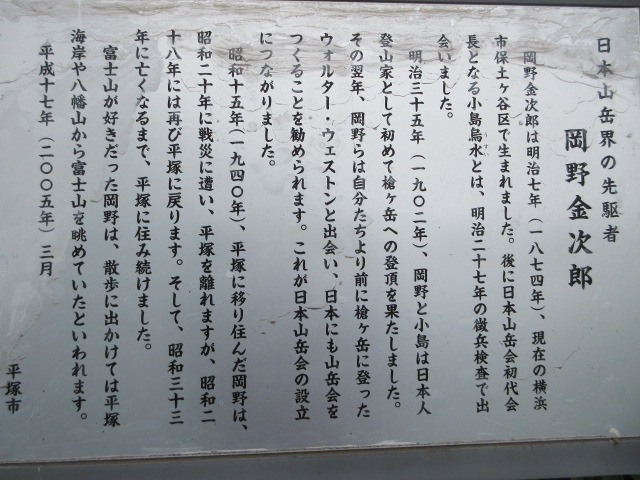 日本山岳界の先駆者
岡野金次郎
岡野金次郎は明治七年（一八七四年）、現在の横浜
市保土ヶ谷区で生まれました。後に日本山岳会初代会
長となる小島烏水とは、明治二十七年の徴兵検査で出
会いました。
明治三十五年（一九〇二年）、岡野と小島は日本人
登山家として初めて槍ヶ岳への登頂を果たしました。
その翌年、岡野らは自分たちより前に槍ヶ岳に登った
ウォルター・ウェストンと出会い、日本にも山岳会を
つくることを勧められます。これが日本山岳会の設立
につながりました。
昭和十五年（一九四〇年）、平塚に移り住んだ岡野は、
昭和二十年に戦災に遭い、平塚を離れますが、昭和二
十八年には再び平塚に戻ります。そして、昭和三十三
年に亡くなるまで、平塚に住み続けました。
富士山が好きだった岡野は、散歩に出かけては平塚
海岸や八幡山から富士山を眺めていたといわれます。
平成十七年（二〇〇五年）三月
平塚市